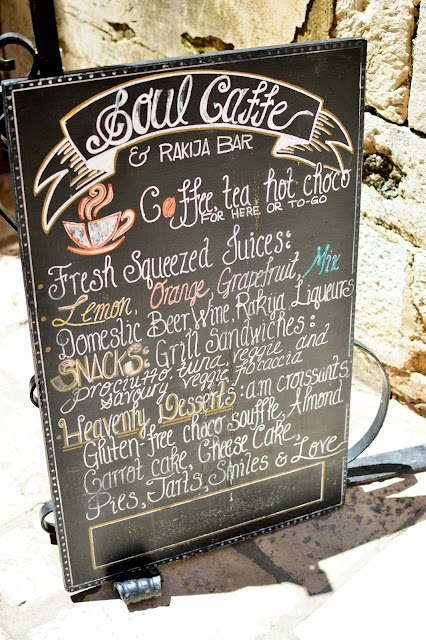 Soul Caffe
& RAKIJA BAR
Coffee, tea, hot choco
FOR HERE OR TO-GO
Fresh Squeezed Juices:
Lemon, Orange, Grapefruit, Mix
Domestic Beer, Wine, Rakija, Liqueurs
SNACKS: Grill Sandwiches:
prociutto, tuna, veggie and
savoury veggie focaccia
Heavenly Desserts: a.m croissants,
Gluten-free choco souffle, Almond
Carrot cake, Cheese Cake,
Pies, Tarts, Smiles & Love